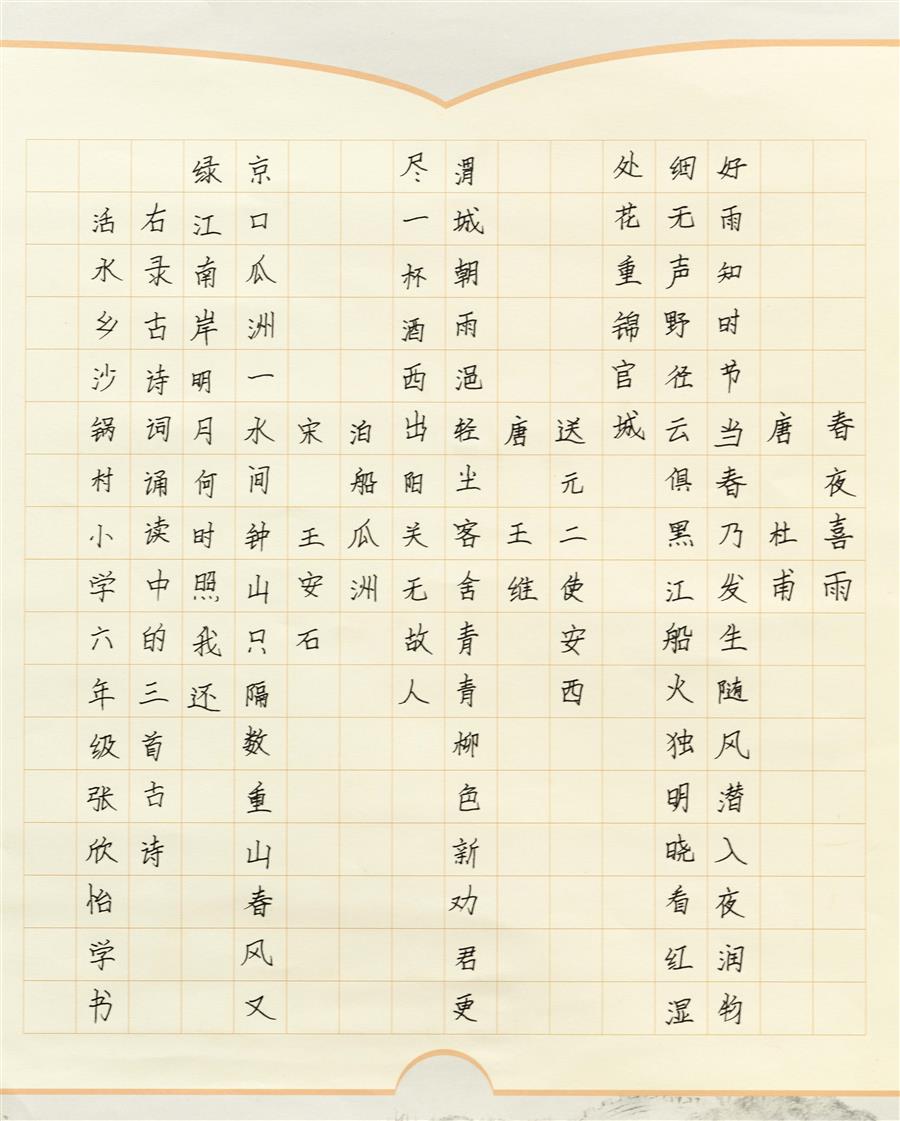 春夜喜雨
唐杜甫
好雨知时节当春乃发生随风潜入夜润物
细无声野径云俱黑江船火独明晓看红湿
处花重锦官城
送元二使安西
唐王维
渭城朝雨浥轻尘客舍青青柳色新劝君更
尽一杯酒西出阳关无故人
泊船瓜洲
宋王安石
京口瓜洲一水间钟山只隔数重山春风又
绿江南岸明月何时照我还
右录古诗词诵读中的三首古诗
活水乡沙锅村小学六年级张欣怡学书